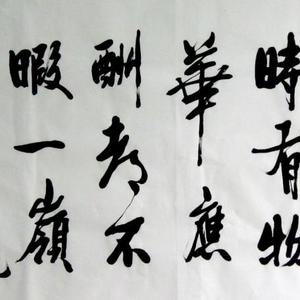 時有物
華應
酬都不
暇一嶺